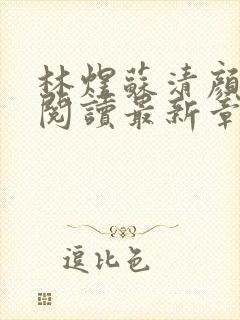 林煌蘇清顏
閱讀最新章
逗比色